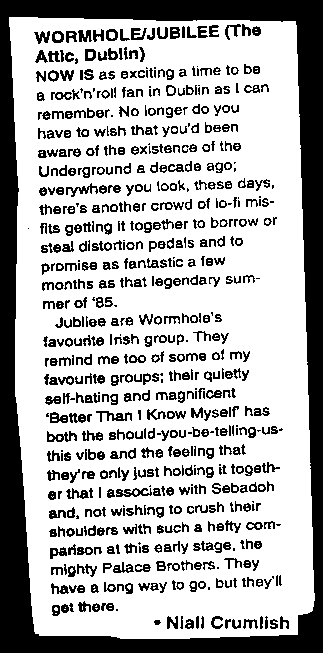 WORMHOLE/JUBILEE (The
Attic, Dublin)
NOW IS as exciting a time to be
a rock'n'roll fan in Dublin as I can
remember. No longer do you
have to wish that you'd been
aware of the existence of the
Underground a decade ago;
everywhere you look, these days,
there's another crowd of lo-fi mis-
fits getting it together to borrow or
steal distortion pedals and to
promise as fantastic a few
months as that legendary sum-
mer of '85.
Jubilee are Wormhole's
favourite Irish group. They
remind me too of some of my
favourite groups; their quietly
self-hating and magnificent
'Better Than I Know Myself' has
both the should-you-be-telling-us-
this vibe and the feeling that
they're only just holding it togeth-
er that I associate with Sebadoh
and, not wishing to crush their
shoulders with such a hefty com-
parison at this early stage, the
mighty Palace Brothers. They
have a long way to go, but they'll
get there.
• Niall Crumlish